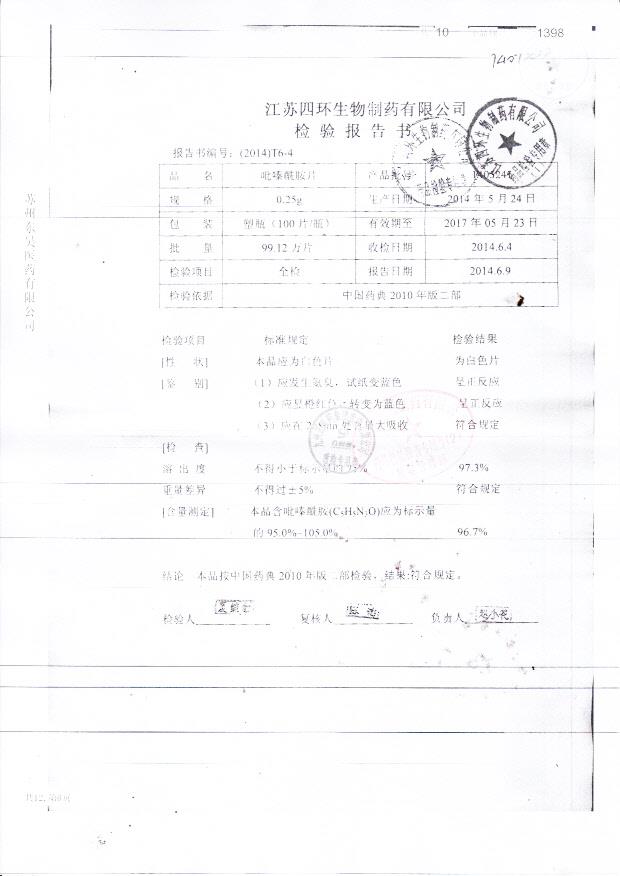 10
1398
江苏四环生物制药有限公司
检验报告书
报告书编号：(2014)T6-4
品 名 吡嗪酰胺片 产品批号
规 格 0.25g 生产日期 2014 年 5 月 24 日
包 装 塑瓶（100 片/瓶） 有效期至 2017 年 05 月 23 日
批 量 99.12 万片 收检日期 2014.6.4
检验项目 全检 报告日期 2014.6.9
检验依据 中国药典 2010 年版二部
检验项目 标准规定 检验结果
[性 状] 本品应为白色片 为白色片
[鉴 别] （1）应发生氨臭，试纸变蓝色 呈正反应
（2）应显橙红色，转变为蓝色 呈正反应
（3）应在 处有最大吸收 符合规定
[检 查]
溶出度 不得小于标示量的 75% 97.3%
重量差异 不得过±5% 符合规定
[含量测定] 本品含吡嗪酰胺(C5H5N3O)应为标示量
的 95.0%-105.0% 96.7%
结论 本品按中国药典 2010 年版二部检验，结果:符合规定。
检验人 复核人 负责人
苏州东吴医药有限公司